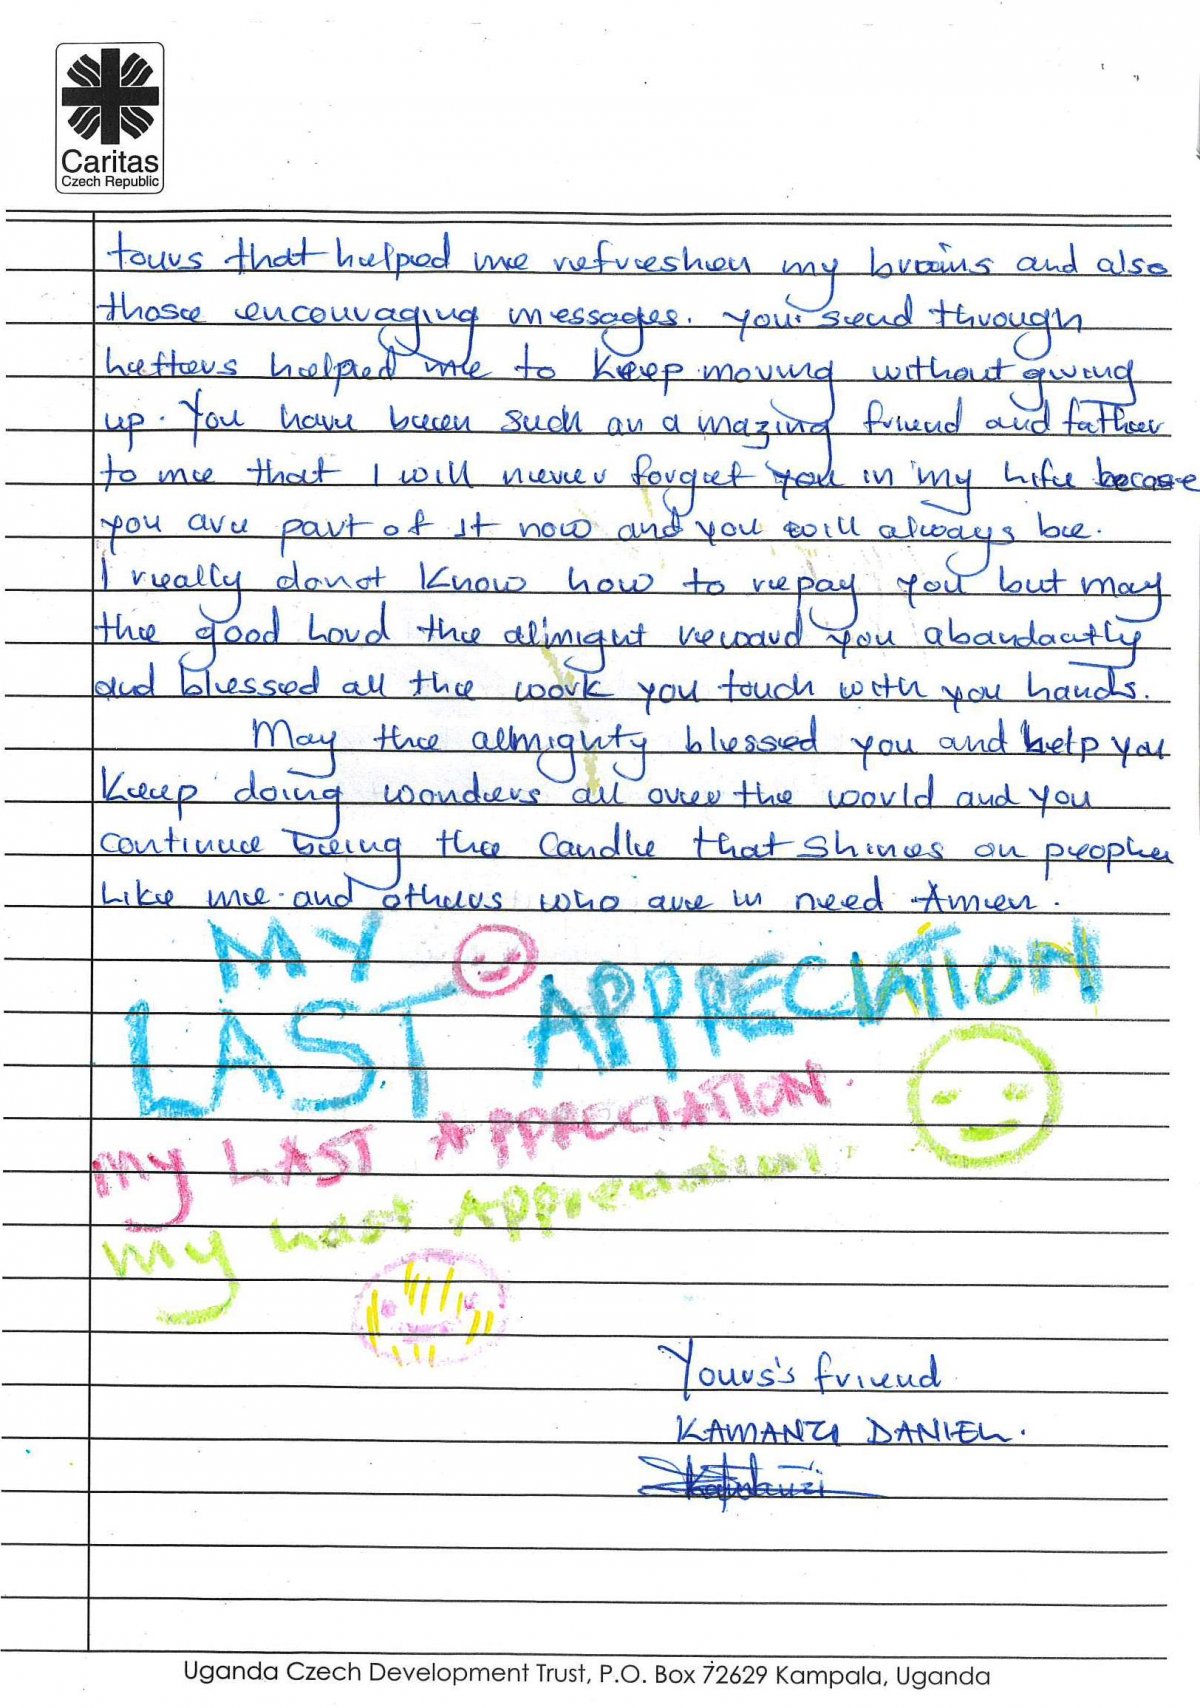 Caritas
Czech Republic
tours that helped me refreshen my brains and also
those encouraging messages. you send through
letters helped me to keep moving without giving
up. You have been such an amazing friend and father
to me that I will never forget you in my life becase
you are part of it now and you will always be.
I really donot know how to repay you but may
the good Lord the almight reward you abandactly
and blessed all the work you touch with you hands.
May the almighty blessed you and help you
keep doing wonders all over the world and you
continue being the candle that shines on people
like me and others who are in need Amen.
MY
LAST APPRECIATION
my LAST APPRECIATION.
my last Appreciation!
Yours's friend
KAMANZI DANIEL.
Uganda Czech Development Trust, P.O. Box 72629 Kampala, Uganda